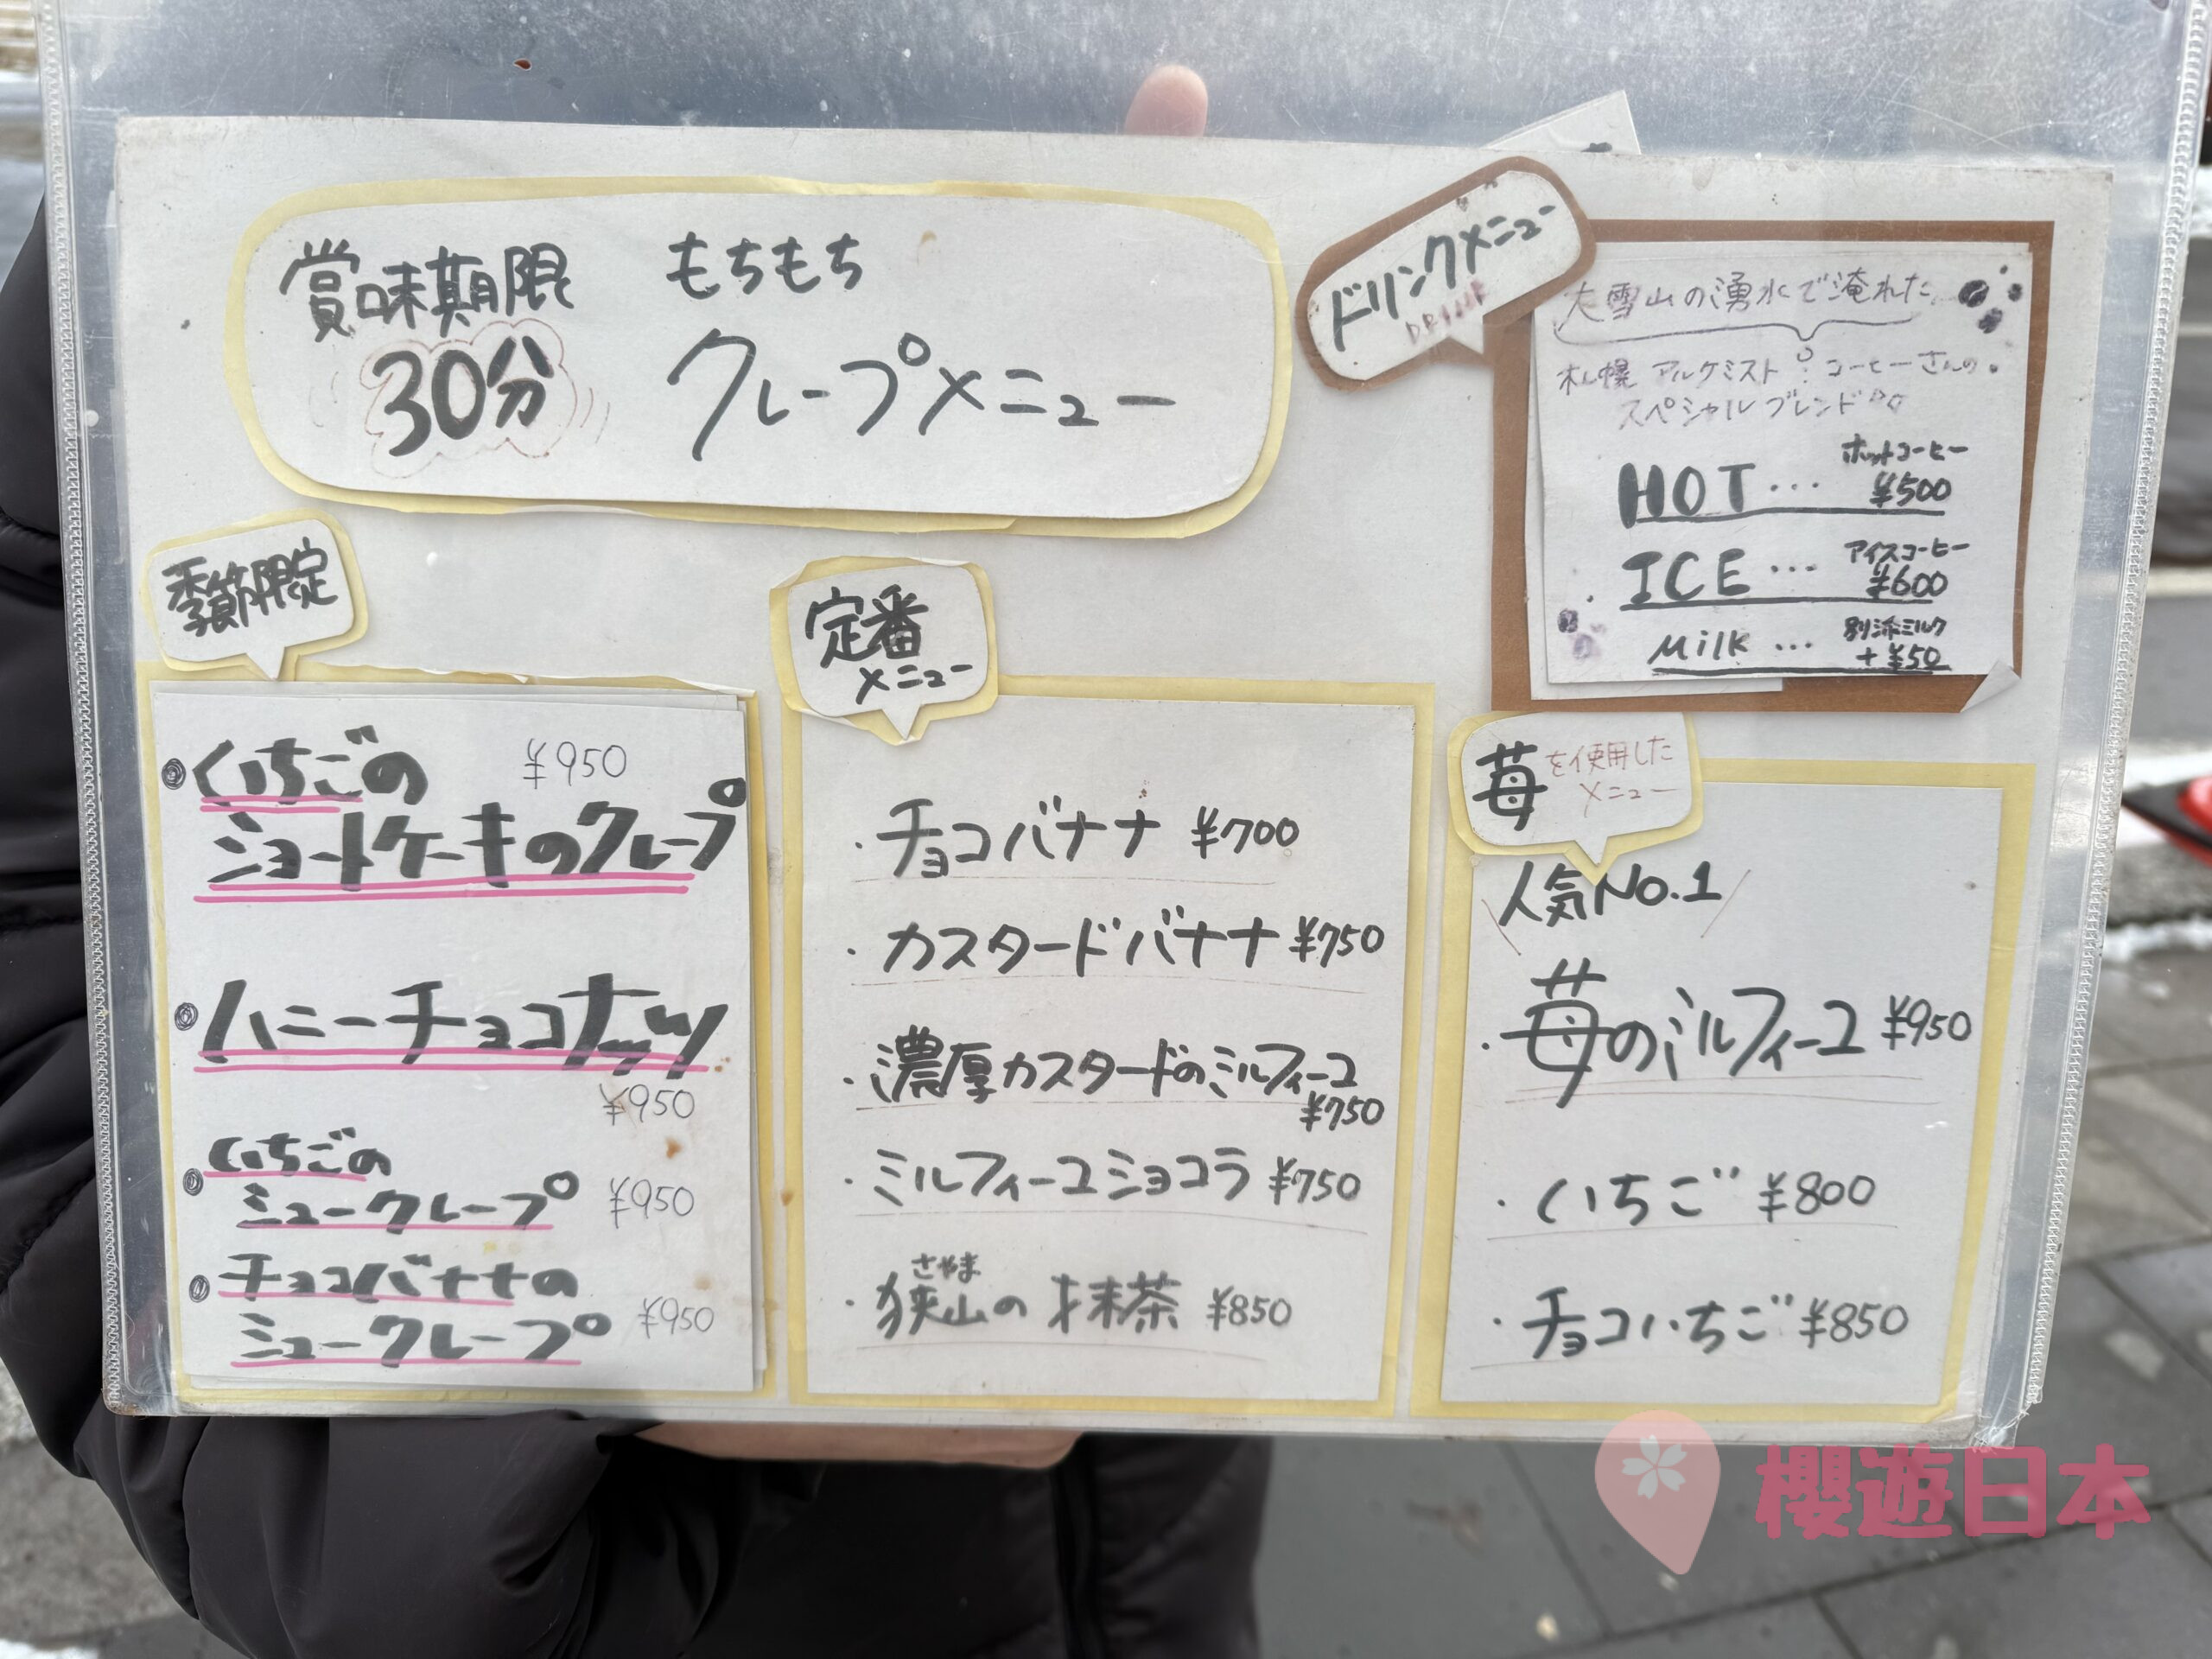 賞味期限
30分
もちもち
クレープメニュー
ドリンクメニュー
DRINK
大雪山の湧水で淹れた
札幌 アルケミスト コーヒーさんの
スペシャルブレンド
HOT… ホットコーヒー
¥500
ICE… アイスコーヒー
¥600
Milk… 別添ミルク
+¥50
季節限定
いちごの ¥950
ショートケーキのクレープ
ハニーチョコナッツ
¥950
いちごの
ミルクレープ ¥950
チョコバナナの
ミルクレープ ¥950
定番
メニュー
・チョコバナナ ¥700
・カスタードバナナ ¥750
・濃厚カスタードのミルフィーユ
¥750
・ミルフィーユショコラ ¥750
さやま
・狭山の抹茶 ¥850
苺を使用した
メニュー
人気No.1
・苺のミルフィーユ ¥950
・いちご ¥800
・チョコいちご ¥850
櫻遊日本